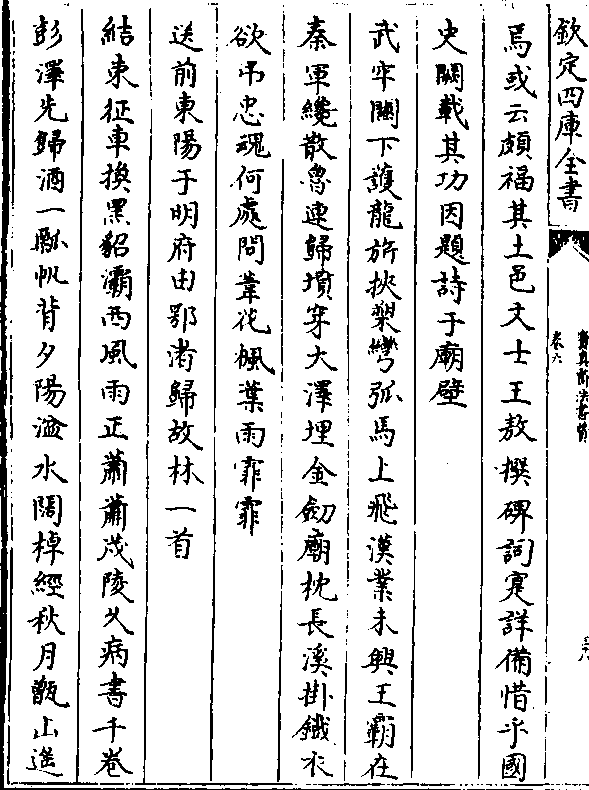 欽定四庫全書
寶真齋法書贊
卷六
焉或云頗福其土邑文士王敖撰碑詞寔詳備惜乎國
史闕載其功因題詩于廟壁
武牢關下護龍旂挾槊彎弧馬上飛漢業未興王霸在
秦軍纔散魯連歸墳穿大澤埋金劒廟枕長溪掛鐵衣
欲弔忠魂何處問葦花楓葉雨霏霏
送前東陽于明府由鄂渚歸故林一首
結束征車換黑貂灞西風雨正蕭蕭茂陵久病書千卷
彭澤先歸酒一瓢帆背夕陽湓水闊棹經秋月甑山遥